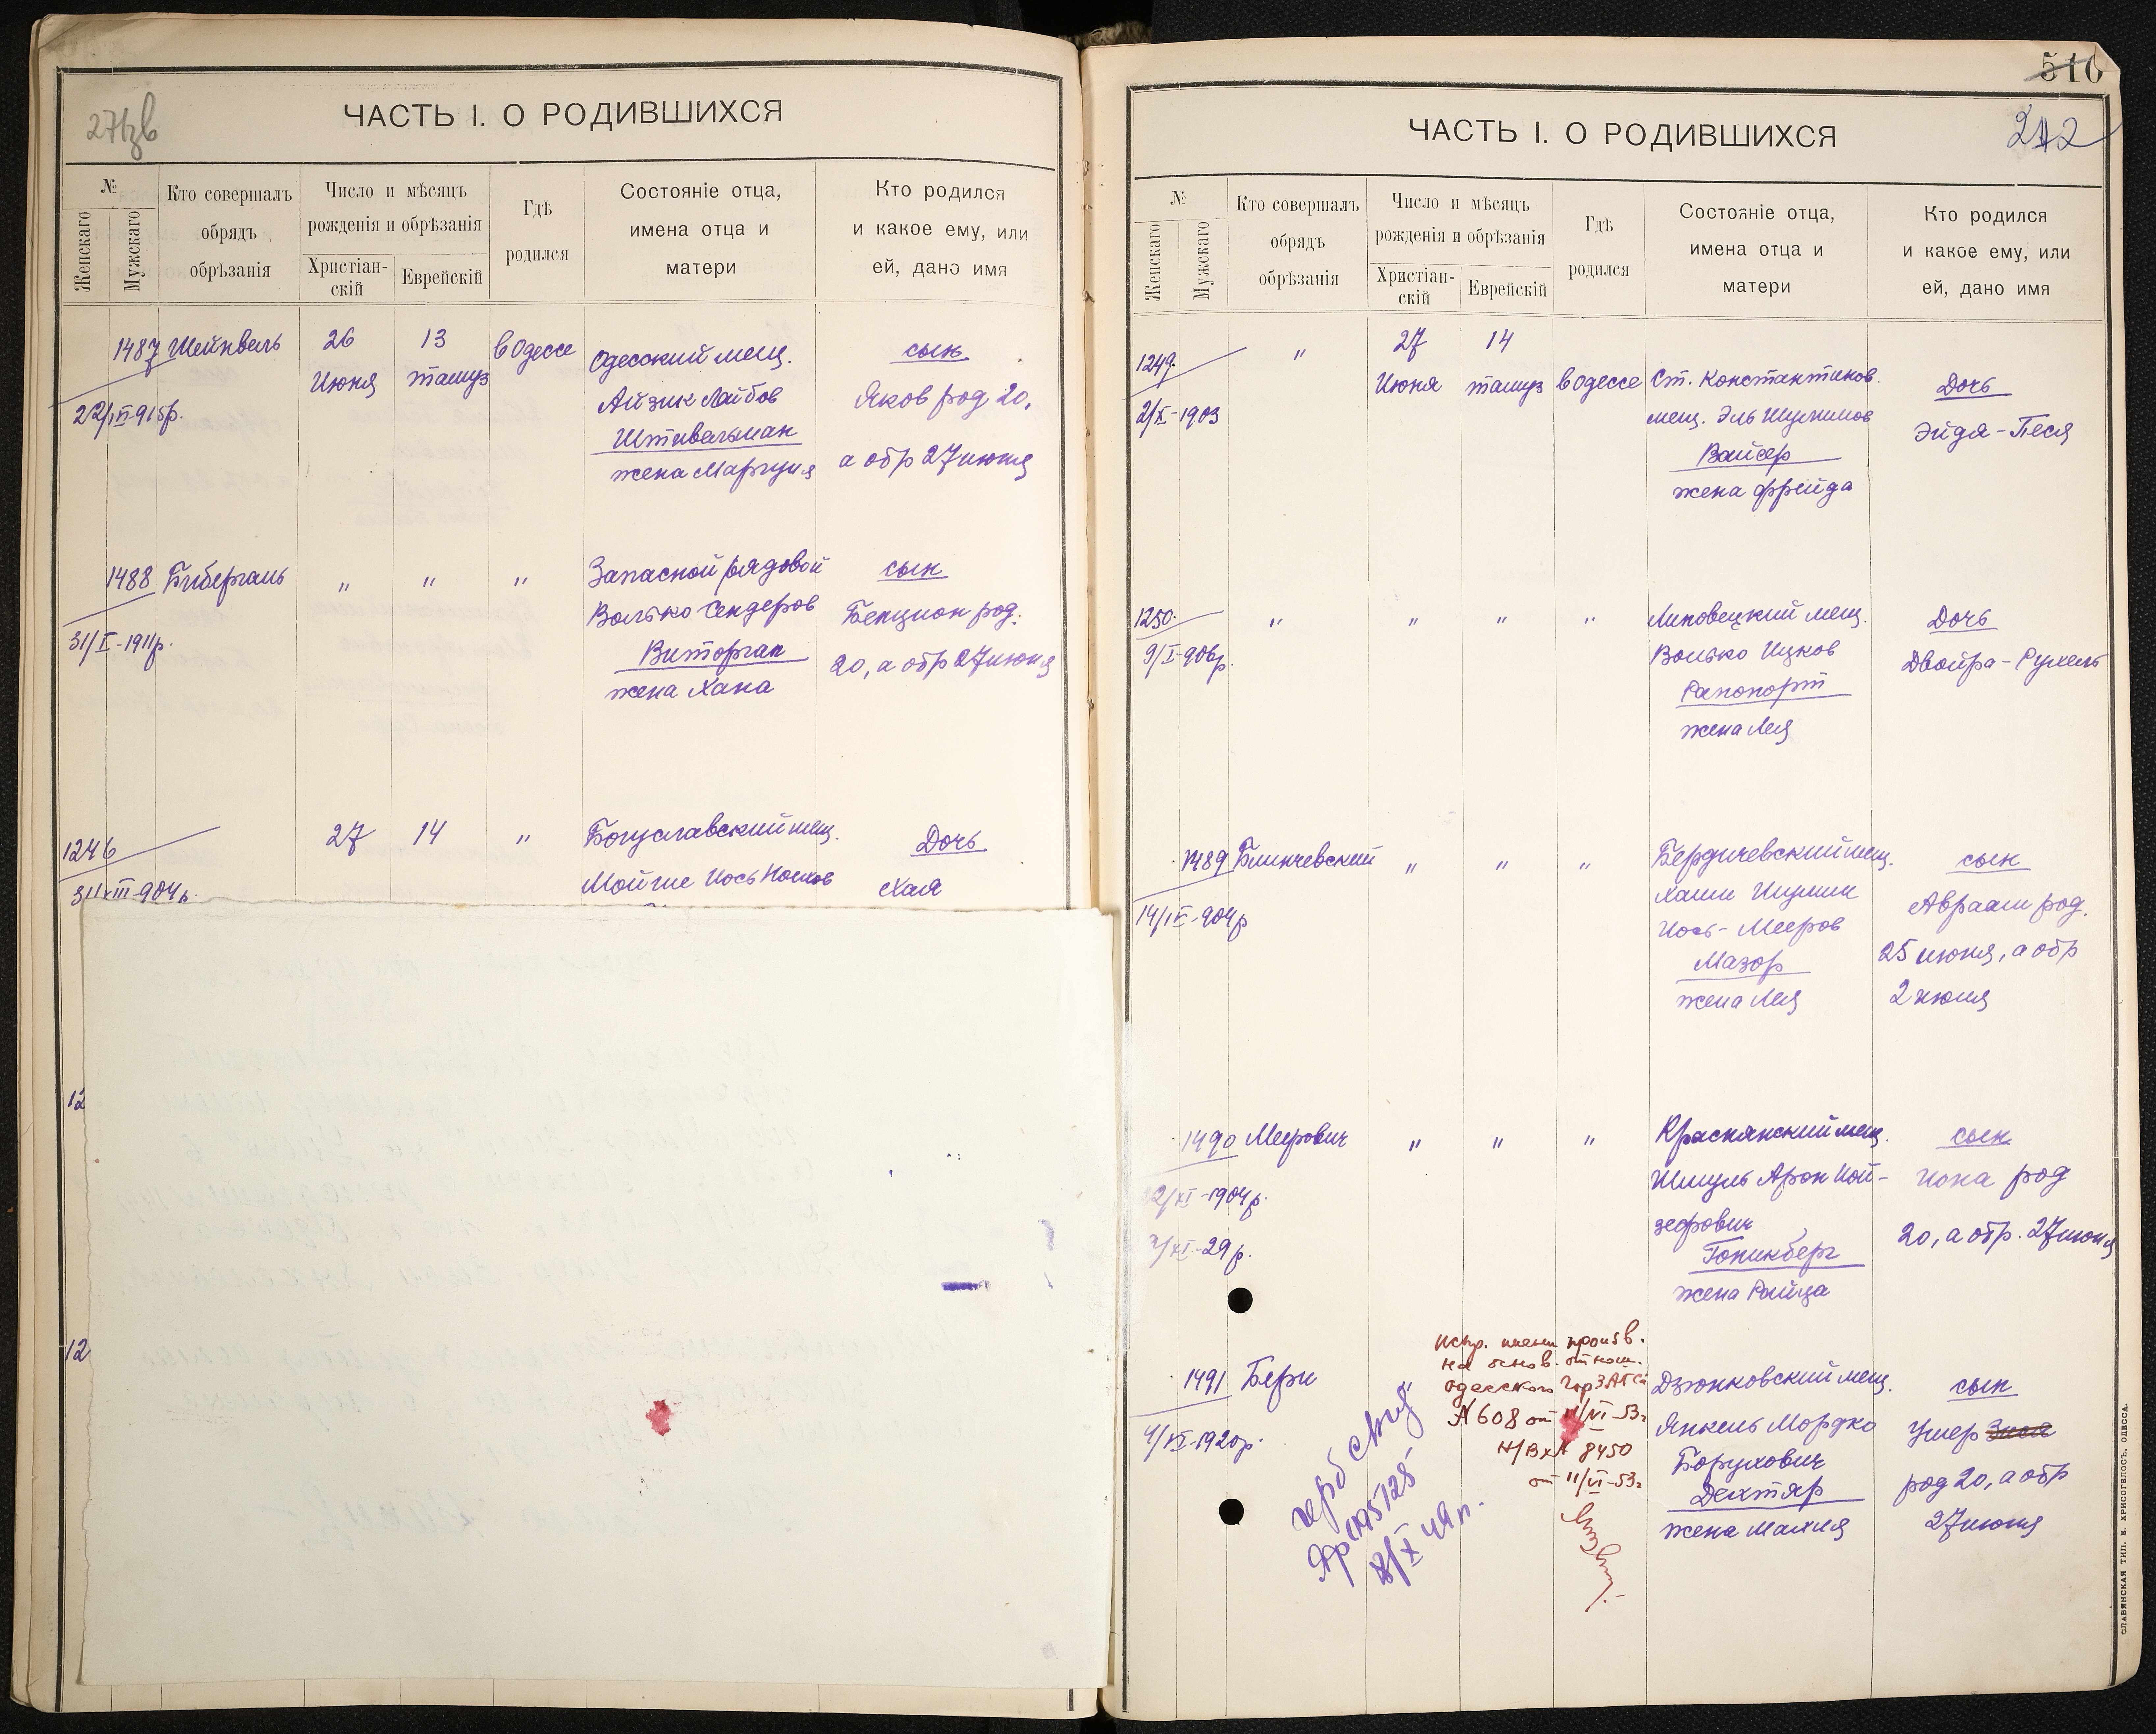 ЧАСТЬ I. О РОДИВШИХСЯ
№
Женскаго
Мужскаго
Кто совершалъ
обрядъ
обрѣзанія
Число и мѣсяцъ
рожденія и обрѣзанія
Христіан-
скій
Еврейскій
Гдѣ
родился
Состояніе отца,
имена отца и
матери
Кто родился
и какое ему, или
ей, дано имя
1487 Шейнвель 26 13 в Одессе
Июня тамуз
Одесский мещ.
Айзик Лайбов
Штивельман
жена Маргуля
сын
Яков род 20,
а обр 27 июня
1488 Бибергаль " " "
31/I-1911р.
Запасной рядовой
Волько Сендеров
Виторган
жена Хана
сын
Бенцион род.
20, а обр 27 июня
1246 27 14 "
Богуславский мещ.
Мойше Иось
Дочь
Хая
12
12
510
212
ЧАСТЬ I. О РОДИВШИХСЯ
№
Женскаго
Мужскаго
Кто совершалъ
обрядъ
обрѣзанія
Число и мѣсяцъ
рожденія и обрѣзанія
Христіан-
скій
Еврейскій
Гдѣ
родился
Состояніе отца,
имена отца и
матери
Кто родился
и какое ему, или
ей, дано имя
1249 " 27 14
Июня тамуз в Одессе
2/X-1903
Ст. Константинов.
мещ. Эль Шулимов
Вайсер
жена Фрейда
Дочь
Эйдя-Песя
1250 " " " "
9/I-906р.
Липовецкий мещ.
Волько Ицков
Рапопорт
жена Лея
Дочь
Двойра-Рухель
1489 Блинчевский " " "
14/IV-904р
Бердичевский мещ.
Хаим Шулим
Иось-Мееров
Мазор
жена Лея
сын
Авраам род.
25 июня, а обр
2 июля
1490 Меерович " " "
2/XI-1904р.
/XI-29р.
Краснянский мещ.
Шмуль Арон Ной-
зерович
жена Ройза
сын
Иона род
20, а обр. 27 июня
1491 Бери
4/VI-1920р.
Испр. имени произв.
на основ. отнош.
Одесского ГорЗАГСа
№ 608 от 11/VI-53г
Н/Вх № 8450
от 11/VI-53г
18/X 49 р.
Дзюнковский мещ.
Янкель Мордко
Борухович
Дехтяр
жена Малия
сын
Ушер
род 20, а обр
27 июня
СЛАВЯНСКАЯ ТИП. Е. ХРИСОГЕЛОСЪ, ОДЕССА.